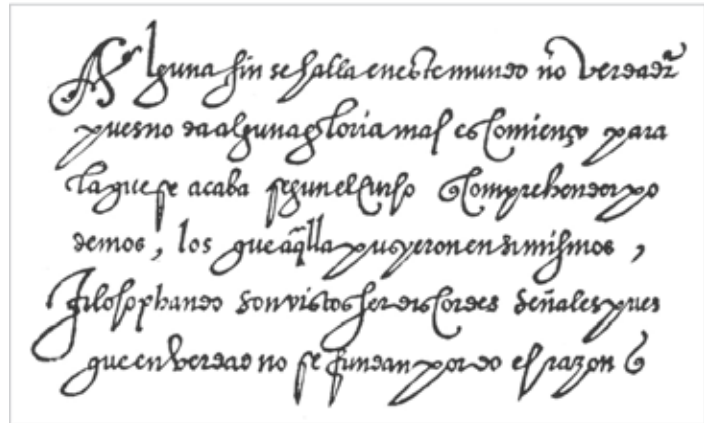 Alguna fin se halla en este mundo no verdadr
pues no da alguna gloria mas es comienço para
la que se acaba segun el curso comprehender po
demos, los que aqlla pusyeron en si mismos,
filosophando son vistos ser discordes señales pues
que en verdad no se fundan por do es razon